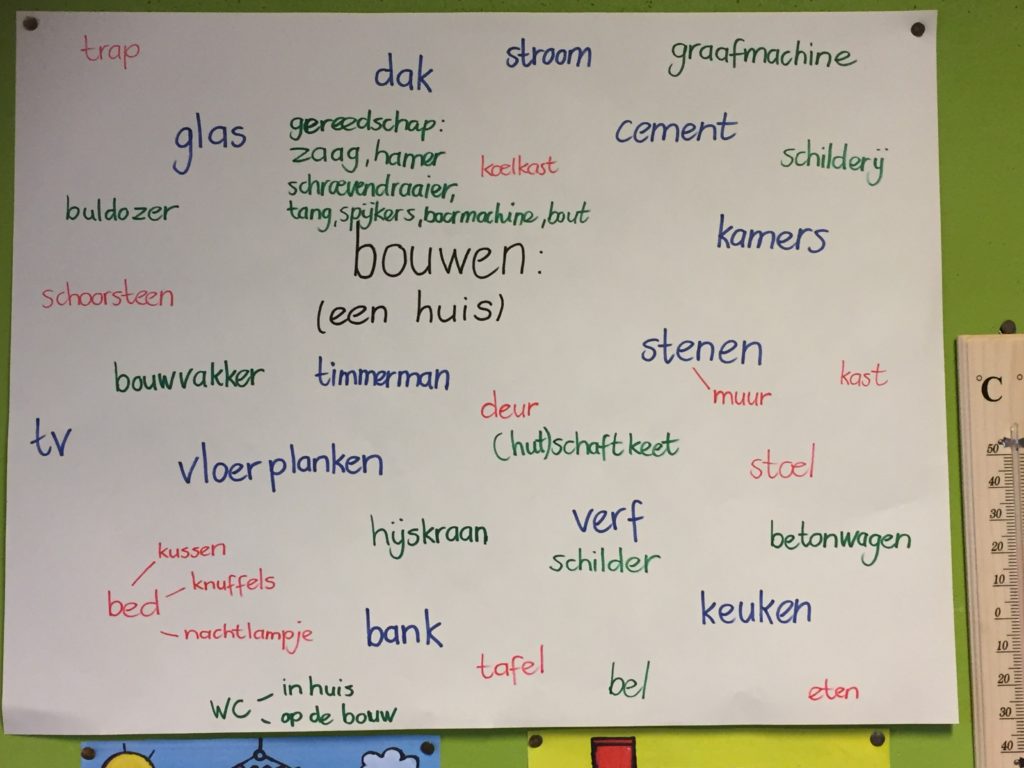 trap
dak
stroom
graafmachine
glas
gereedschap:
zaag, hamer
schroevendraaier,
tang, spijkers, boormachine, bout
koelkast
cement
schilderij
buldozer
kamers
bouwen:
(een huis)
schoorsteen
bouwvakker
timmerman
stenen
muur
kast
deur
(hut)schaftkeet
tv
vloerplanken
stoel
hijskraan
verf
schilder
betonwagen
kussen
knuffels
bed
nachtlampje
bank
keuken
tafel
bel
eten
WC
in huis
op de bouw
°C
50
40
30
20
10
0
10
20
30
40